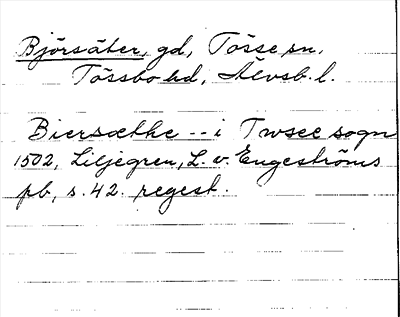 Björsäter, gd, Tösse sn.
Tössbo hd, Älvsb. l.
Biersæthe -- i Twsee sogn
1502, Liljegren, L. v. Engeströms
pb, s. 42. regest.